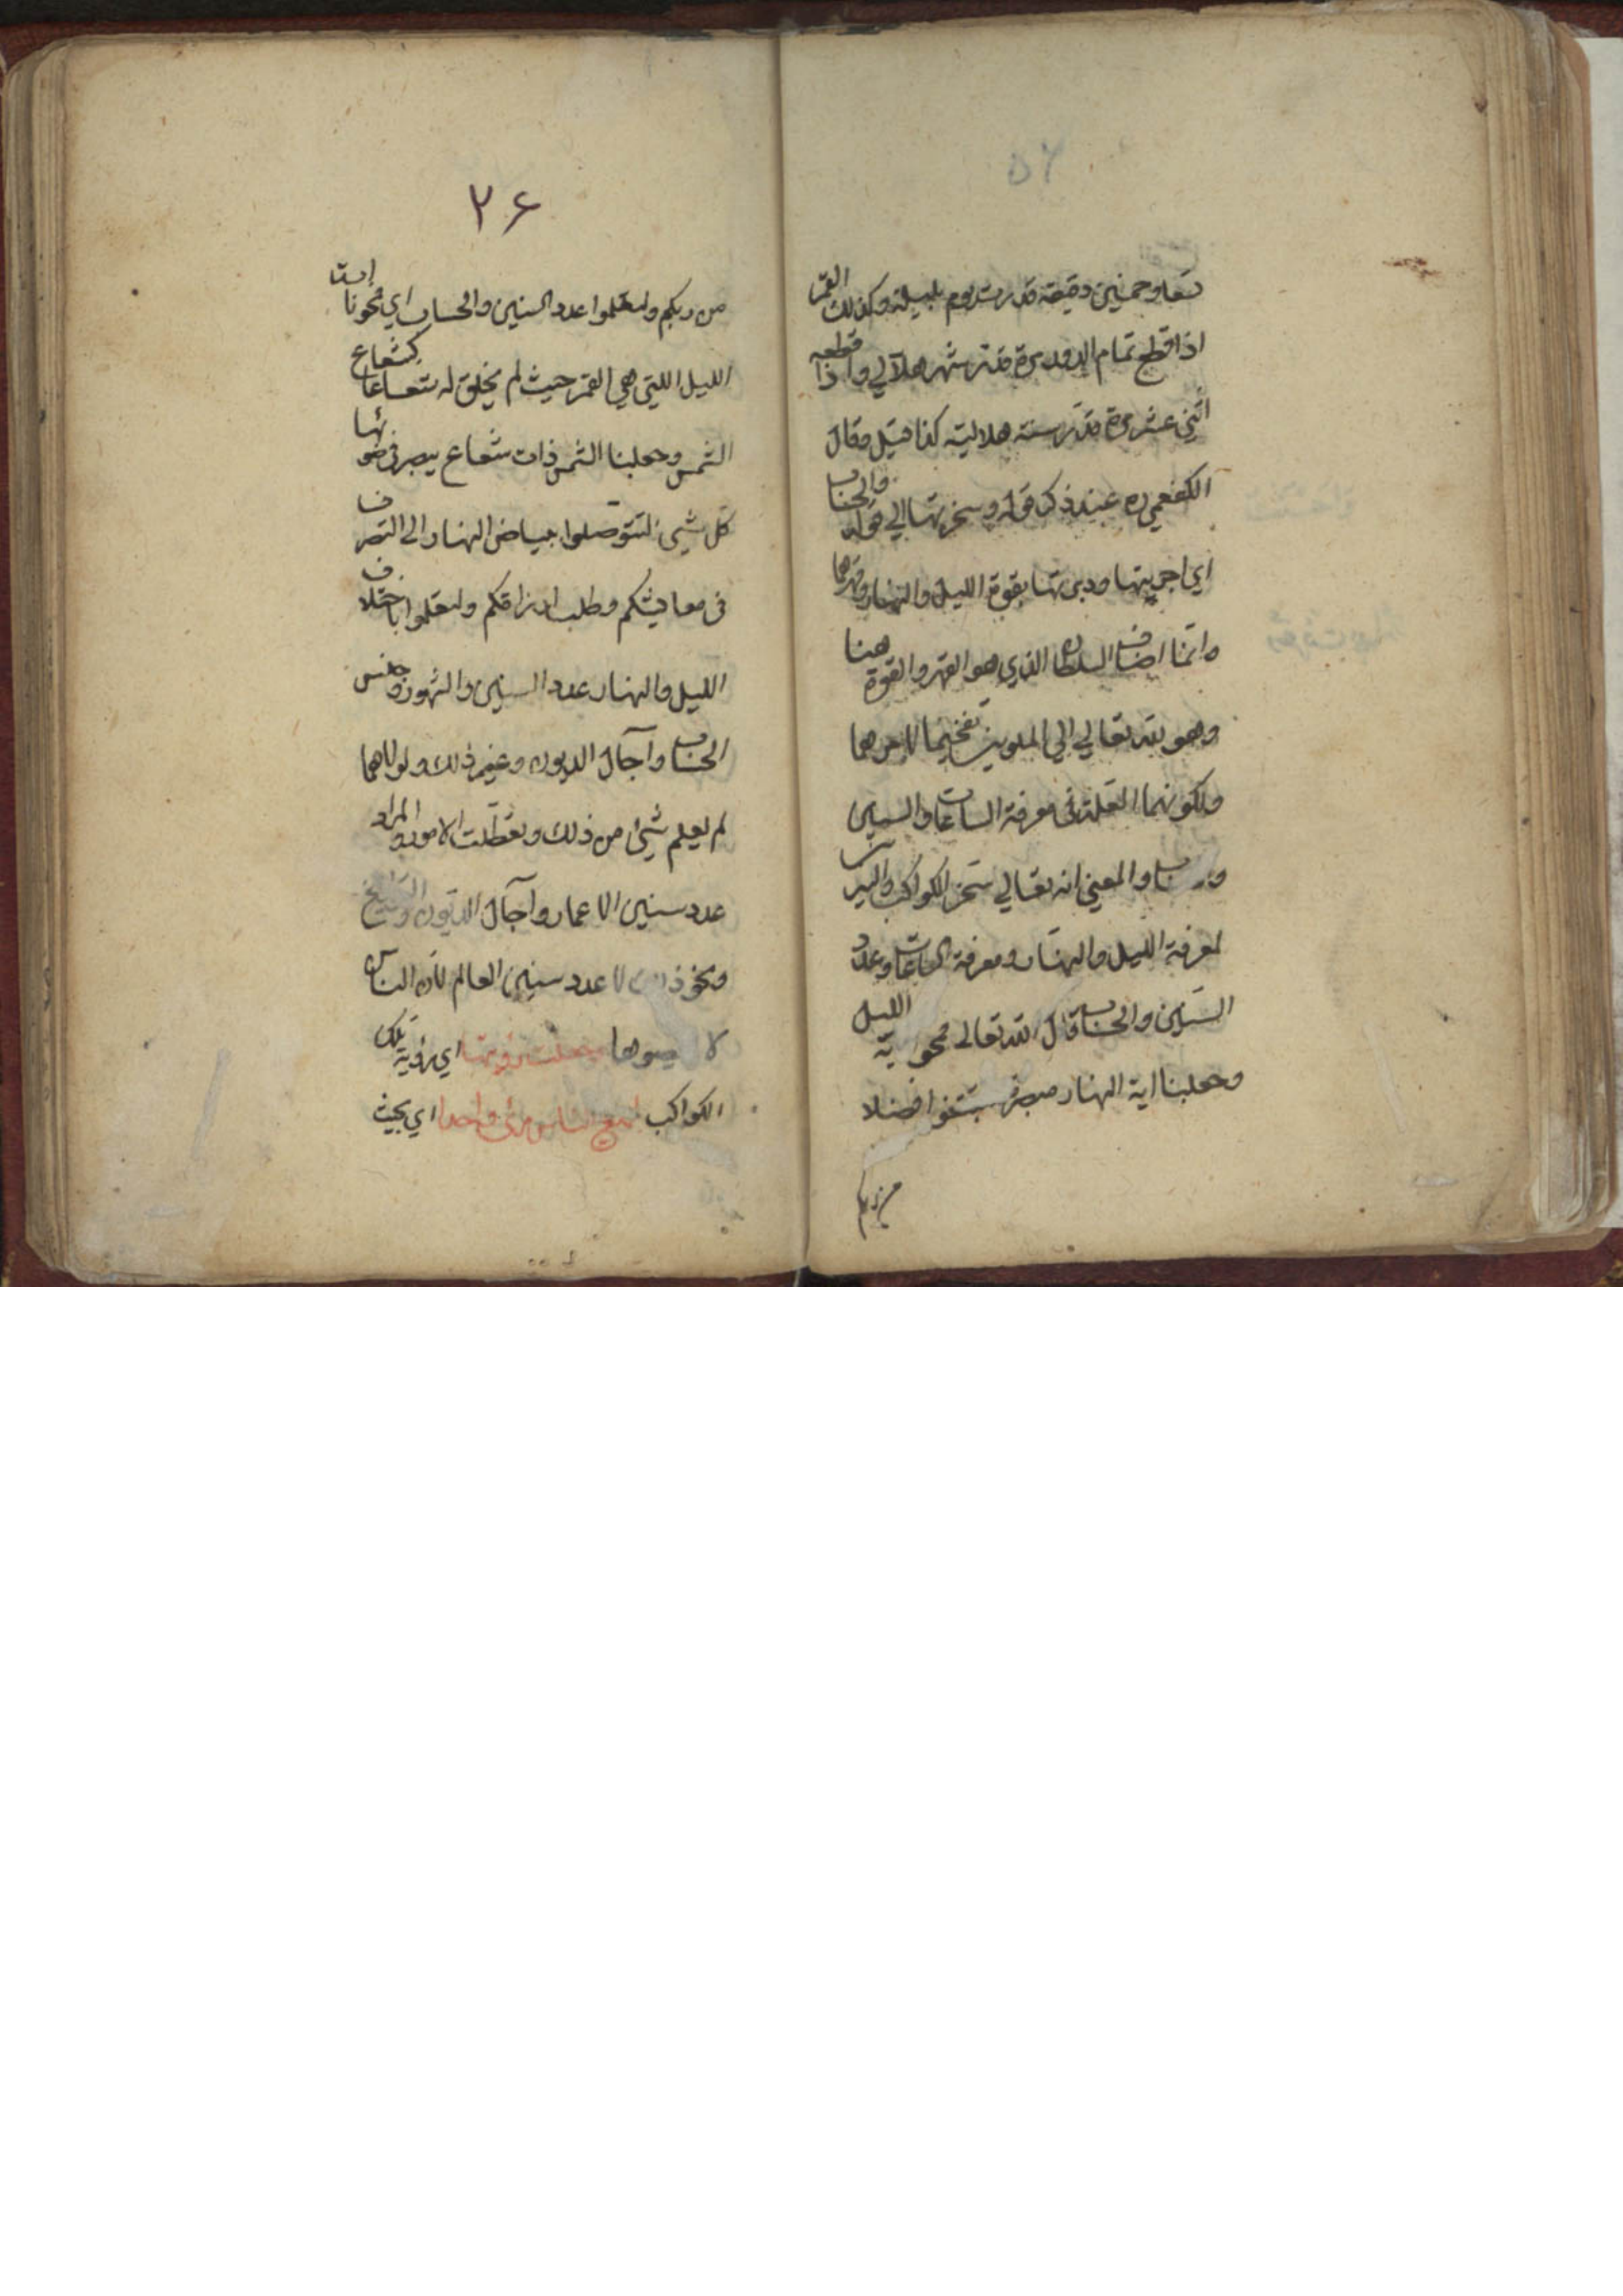 ۵۲
تسعا وخمسين دقيقة قدرت يوم بليلة وكذلك القمر
اذا قطع تمام الدورة قدرت شهر هلالي واذا قطعه
اثني عشر مرة قدرت سنة هلالية كذا قيل وقال
الكفعمي ره عند ذكر قوله وسخرتها الي قوله والحساب
اي اجريتها ودبرتها بقوة الليل والنهار وقهرهما
وانما اضاف السلطان الذي هو القهر والقوة هنا
وهو لله تعالي الي الملوين تفخيما لامرهما
ولكونهما العلة في معرفة الساعات والسنين
والحساب والمعني انه تعالي سخر الكواكب والنيرات
لمعرفة الليل والنهار ومعرفة الساعات وعدد
السنين والحساب قال الله تعالي فمحونا اية الليل
وجعلنا اية النهار مبصرة لتبتغوا فضلا
من ربكم
۲۶
من ربكم ولتعلموا عدد السنين والحساب اي فمحونا اية
الليل اللتي هي القمر حيث لم يخلق له شعاعا كشعاع
الشمس وجعلنا الشمس ذات شعاع يبصر في ضوئها
كل شيئ لتتوصلوا ببياض النهار الي التصرف
في معايشكم وطلب ارزاقكم ولتعلموا باختلاف
الليل والنهار عدد السنين والشهور وجنس
الحساب وآجال الديون وغير ذلك ولولاهما
لم يعلم شيئ من ذلك وتعطلت الامور والمراد
عدد سنين الاعمار وآجال الديون والتواريخ
ونحو ذلك لا عدد سنين العالم لان الناس
لا يحصوها وجعلت رؤيتها اي رؤية تلك
الكواكب لجميع الناس مرئ واحدا اي بحيث